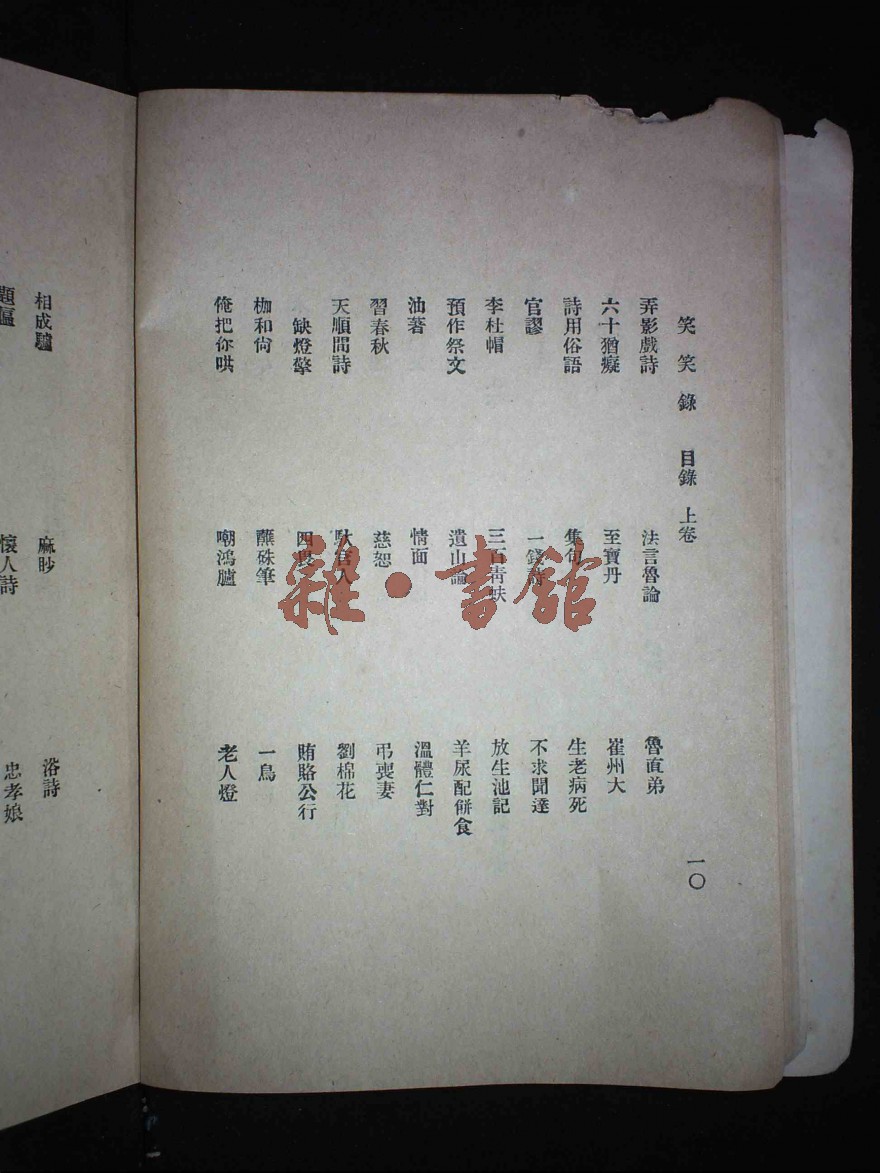 笑笑錄 目錄 上卷 一〇
弄影戲詩 法言魯論 魯直弟
六十猶癡 至寶丹 崔州大
詩用俗語 集句 生老病死
官謬 一錢 不求聞達
李杜帽 三百青蚨 放生池記
預作祭文 遺山論 羊尿配餅食
油著 情面 溫體仁對
習春秋 慈恕 弔喪妻
天順間詩 劉棉花
缺燈檠 四畏 賄賂公行
枷和尙 蘸硃筆 一鳥
俺把你哄 嘲鴻臚 老人燈
相成驢 麻眇 浴詩
題傴 懷人詩 忠孝娘
雜·書館